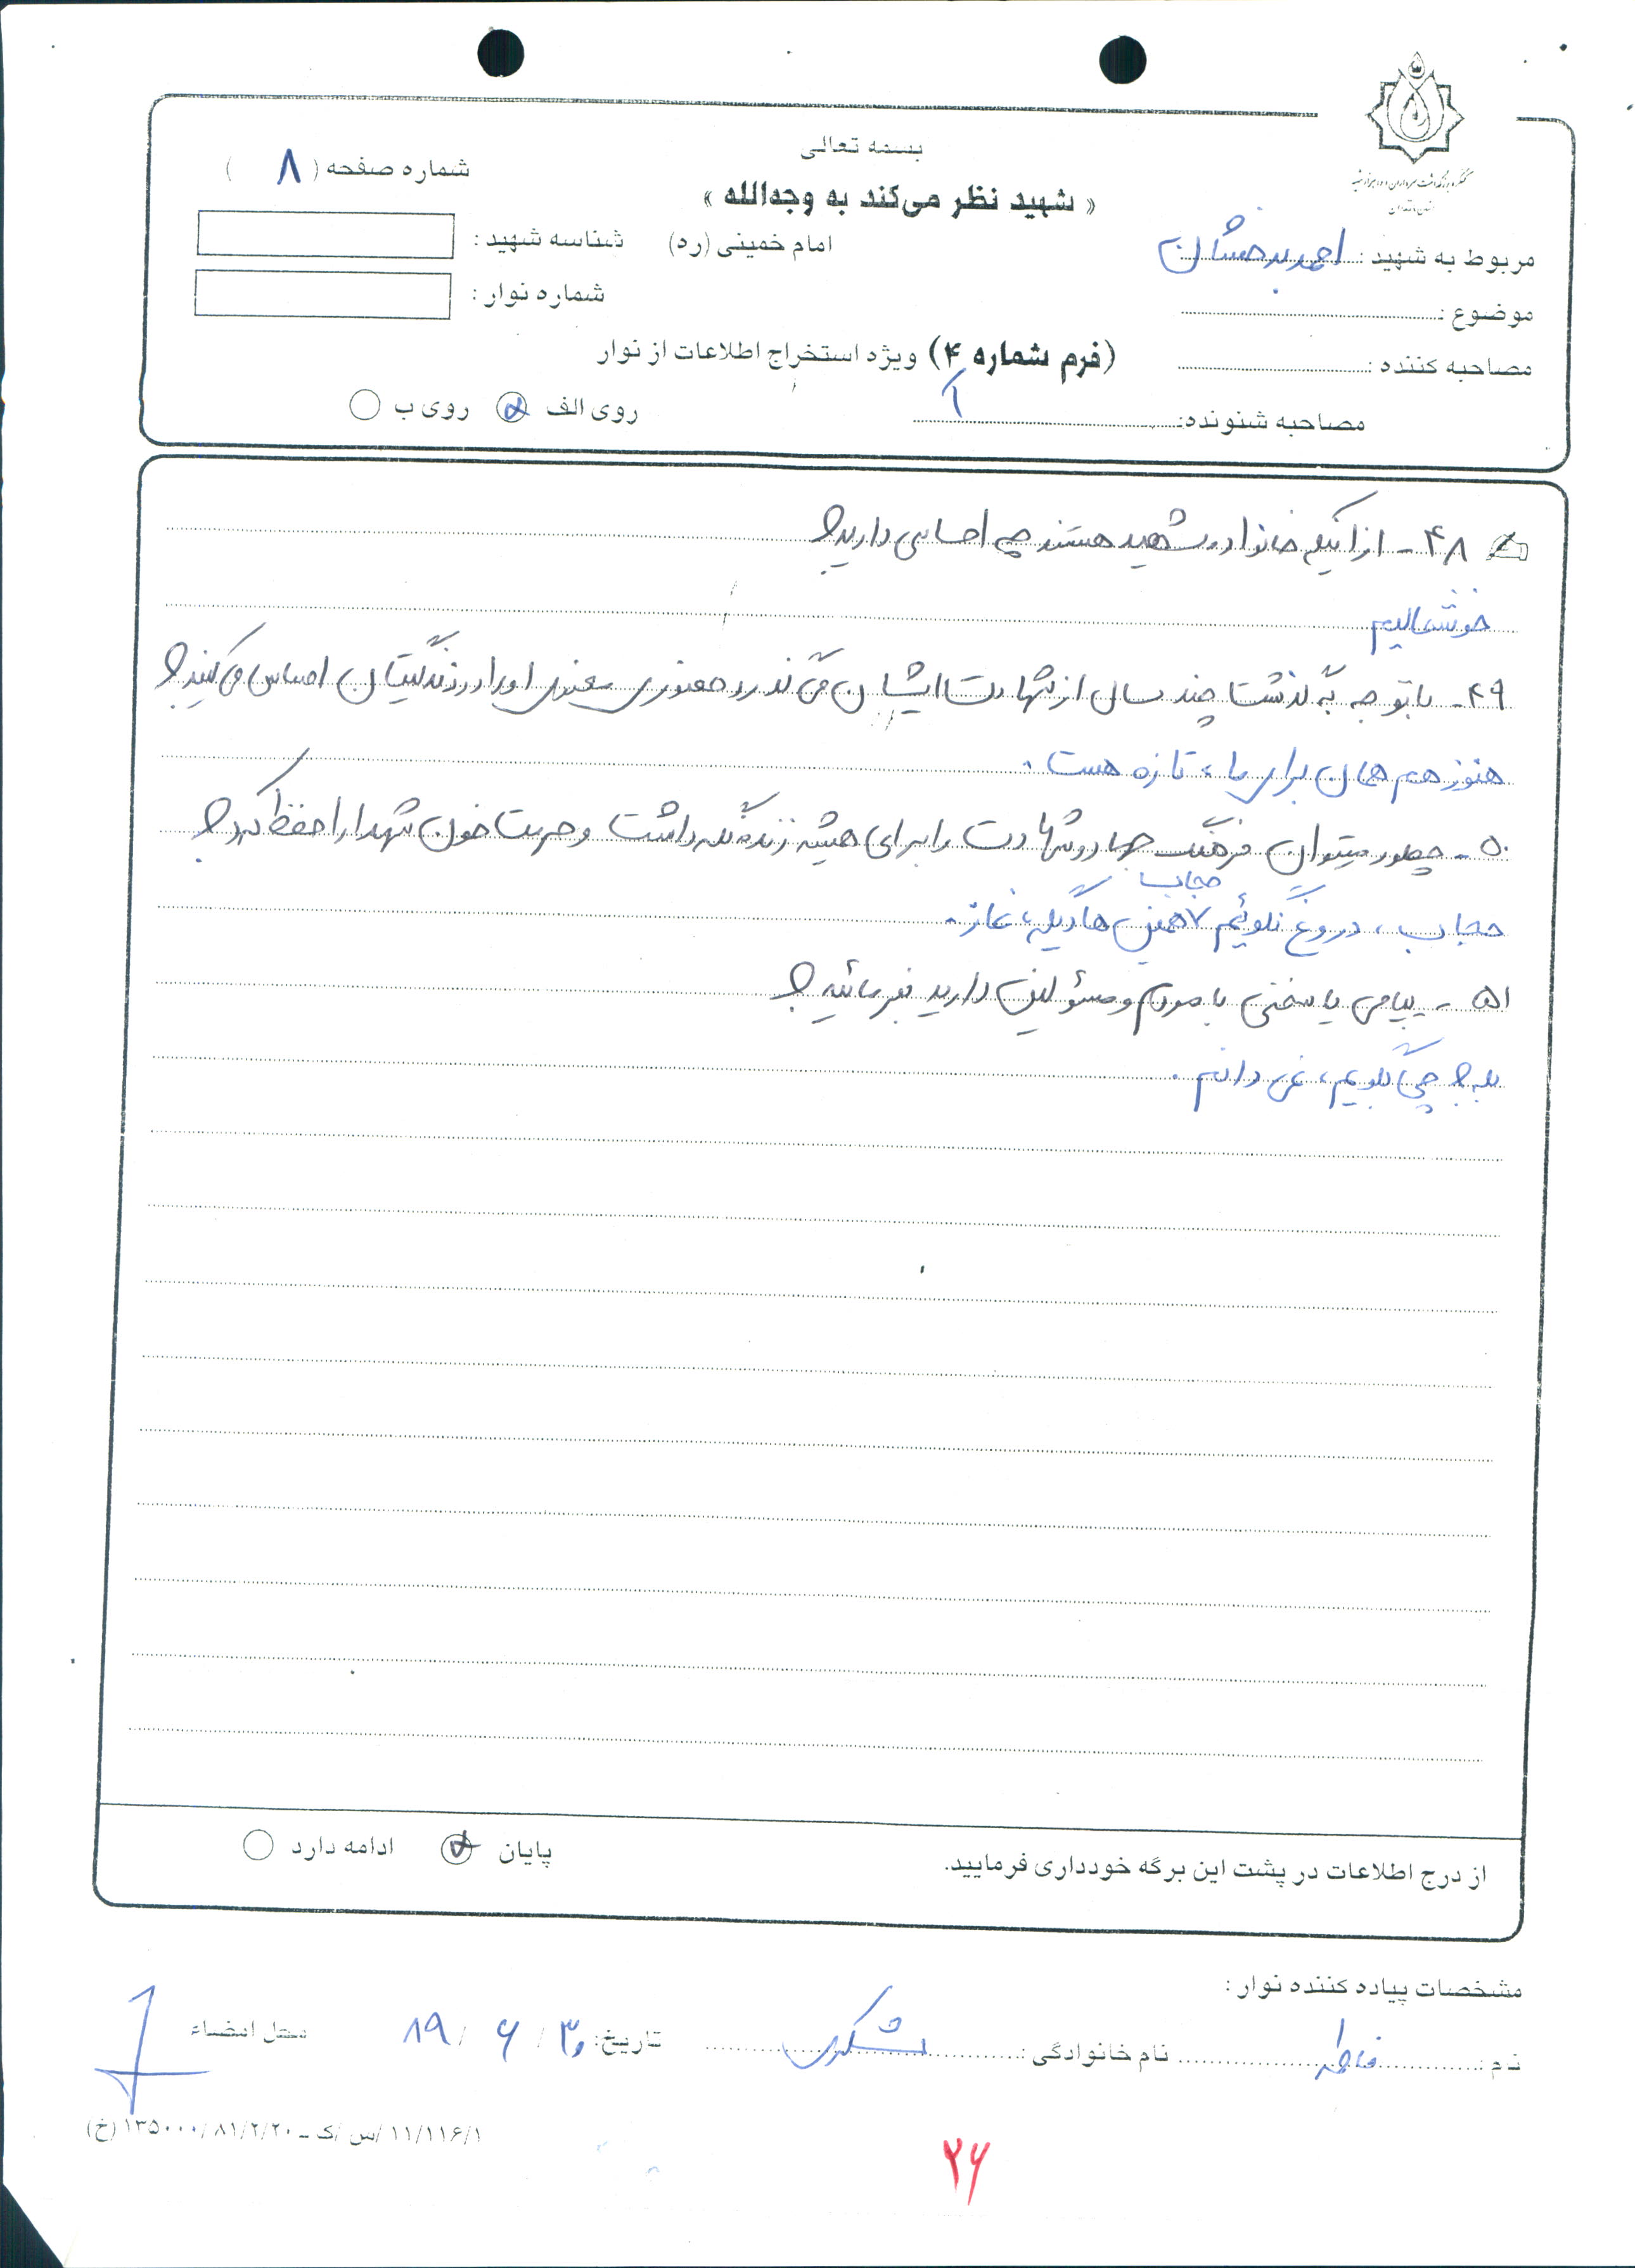 بسمه تعالی
« شهید نظر می‌کند به وجه‌الله »
امام خمینی (ره)
شماره صفحه ( ۸ )
شناسه شهید :
شماره نوار :
مربوط به شهید : احمد بدخشان
موضوع :
مصاحبه کننده :
(فرم شماره ۴) ویژه استخراج اطلاعات از نوار
مصاحبه شنونده:
روی الف روی ب
۴۸ - از اینکه خانواده شهید هستند چه احساسی دارید؟
خوشحالیم
۴۹ - با توجه به گذشت چند سال از شهادت ایشان می گذرد حضوری معنوی او را در زندگیتان احساس می کنید؟
هنوز هم همان برای ما، تازه هست.
۵۰ - چطور میتوان فرهنگ جهاد و شهادت را برای همیشه زنده نگه داشت و حرمت خون شهدا را حفظ کرد؟
حجاب
حجاب، دروغ نگوئیم ۷ همین ها دیگه، نماز.
۵۱ - پیامی یا سخنی با مردم و مسئولین دارید بفرمائید؟
بله؟ چی بگویم، نمی دانم.
از درج اطلاعات در پشت این برگه خودداری فرمایید.
پایان ادامه دارد
مشخصات پیاده کننده نوار :
نام : فاطمه نام خانوادگی : لشکری تاریخ: ۳۰ / ۶ / ۸۹ محل امضاء
۱۱/۱۱۶/۱ /س /ک ــ ۸۱/۲/۲۰ /۱۳۵۰۰۰ (خ)
۲۶